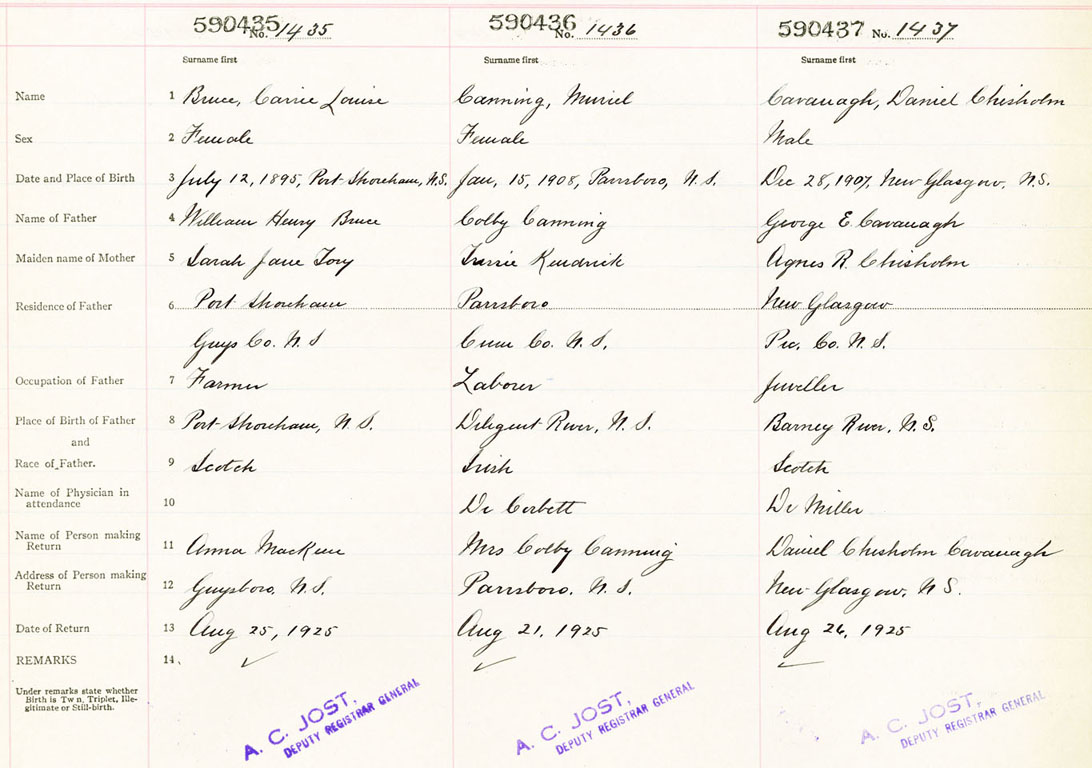 590435 No. 1435 590436 No. 1436 590437 No. 1437
Surname first Surname first Surname first
Name 1 Bruce, Carrie Louise Canning, Muriel Cavanagh, Daniel Chisholm
Sex 2 Female Female Male
Date and Place of Birth 3 July 12, 1895, Port Shoreham, N.S. Jan, 15, 1908, Parrsboro, N.S. Dec 28, 1907, New Glasgow, N.S.
Name of Father 4 William Henry Bruce Colby Canning George E. Cavanagh
Maiden name of Mother 5 Sarah Jane Tory Kendrick Agnes R. Chisholm
Residence of Father 6 Port Shoreham Parrsboro New Glasgow
Guys Co. N.S Cum Co. N.S. Pic. Co. N.S.
Occupation of Father 7 Farmer Laborer Jeweller
Place of Birth of Father 8 Port Shoreham, N.S. Diligent River, N.S. Barney River, N.S.
and
Race of Father. 9 Scotch Irish Scotch
Name of Physician in
attendance 10 Dr Corbett Dr Miller
Name of Person making
Return 11 Anna Mrs Colby Canning Daniel Chisholm Cavanagh
Address of Person making
Return 12 Guysboro, N.S. Parrsboro. N.S. New Glasgow, N.S.
Date of Return 13 Aug 25, 1925 Aug 21, 1925 Aug 26, 1925
REMARKS 14. ✓ ✓ ✓
Under remarks state whether
Birth is Tw n, Triplet, Ille-
gitimate or Still-birth.
A. C. JOST, A. C. JOST, A. C. JOST,
DEPUTY REGISTRAR GENERAL DEPUTY REGISTRAR GENERAL DEPUTY REGISTRAR GENERAL